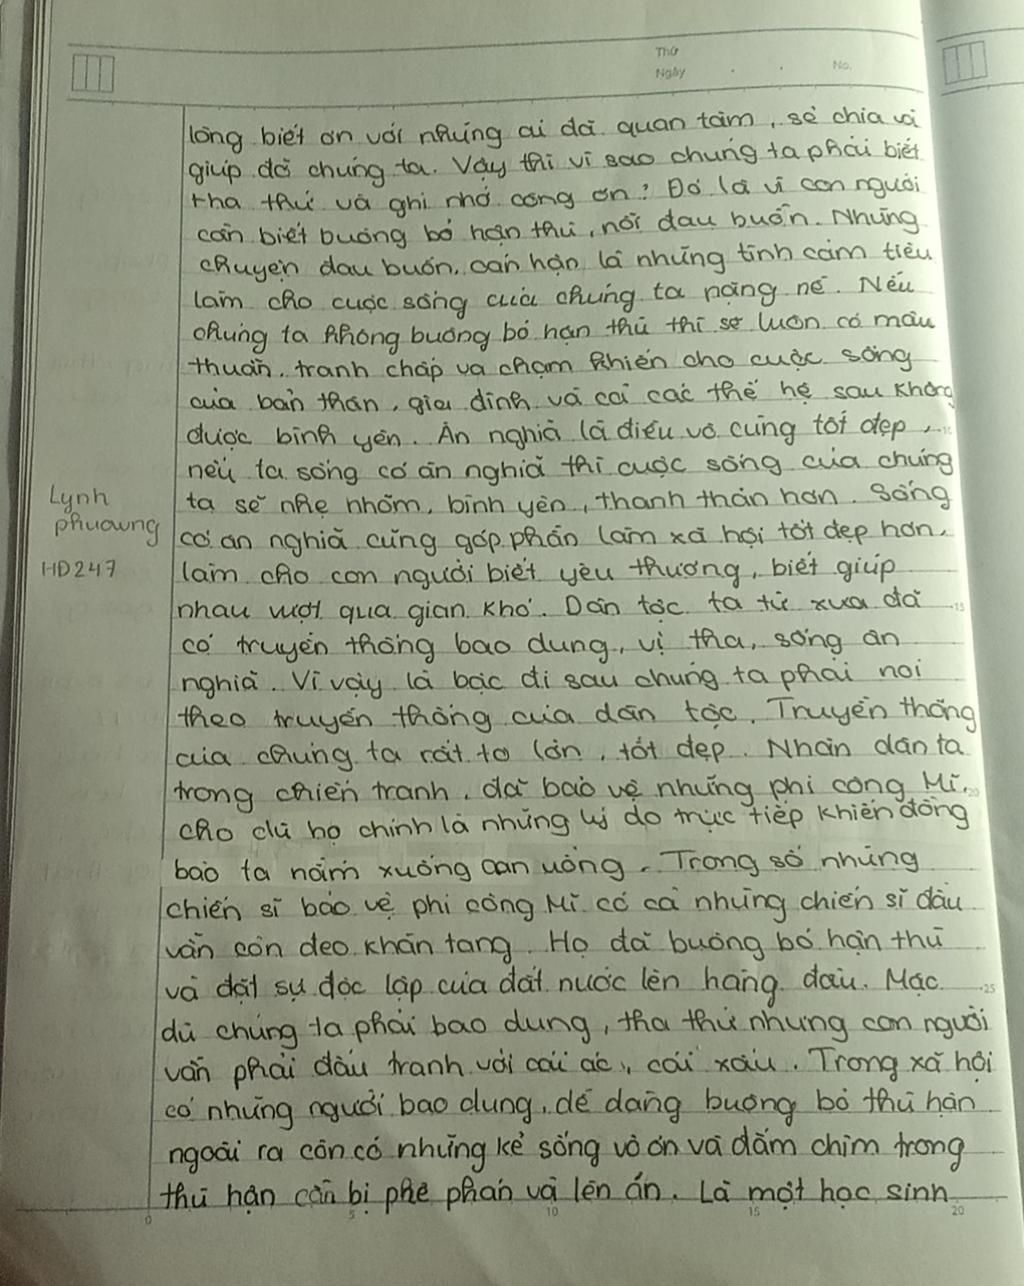 Thứ
Ngày
No.
lòng biết ơn với những ai đã quan tâm, sẻ chia và
giúp đỡ chúng ta. Vậy thì vì sao chúng ta phải biết
tha thứ và ghi nhớ công ơn? Đó là vì con người
cần biết buông bỏ hận thù, nỗi đau buồn. Những
chuyện đau buồn, oán hận là những tình cảm tiêu
làm cho cuộc sống của chúng ta nặng nề. Nếu
chúng ta không buông bỏ hận thù thì sẽ luôn có mâu
thuẫn, tranh chấp va chạm khiến cho cuộc sống
của bản thân, gia đình và cả các thế hệ sau không
được bình yên. Ân nghĩa là điều vô cùng tốt đẹp,
nếu ta sống có ân nghĩa thì cuộc sống của chúng
ta sẽ nhẹ nhõm, bình yên, thanh thản hơn. Sống
có ân nghĩa cũng góp phần làm xã hội tốt đẹp hơn,
làm cho con người biết yêu thương, biết giúp
nhau vượt qua gian khó. Dân tộc ta từ xưa đã
có truyền thống bao dung, vị tha, sống ân
nghĩa. Vì vậy là bậc đi sau chúng ta phải noi
theo truyền thống của dân tộc. Truyền thống
của chúng ta rất to lớn, tốt đẹp. Nhân dân ta
trong chiến tranh, đã bảo vệ những phi công Mĩ,
cho dù họ chính là những lý do trực tiếp khiến đồng
bào ta nằm xuống oan uổng. Trong số những
chiến sĩ bảo vệ phi công Mĩ có cả những chiến sĩ đầu
vẫn còn đeo khăn tang. Họ đã buông bỏ hận thù
và đặt sự độc lập của đất nước lên hàng đầu. Mặc
dù chúng ta phải bao dung, tha thứ nhưng con người
vẫn phải đấu tranh với cái ác, cái xấu. Trong xã hội
có những người bao dung, dễ dàng buông bỏ thù hận
ngoài ra còn có những kẻ sống vô ơn và đắm chìm trong
thù hận cần bị phê phán và lên án. Là một học sinh
Lynh
phuawng
HD247
15
20
25
0
5
10
15
20